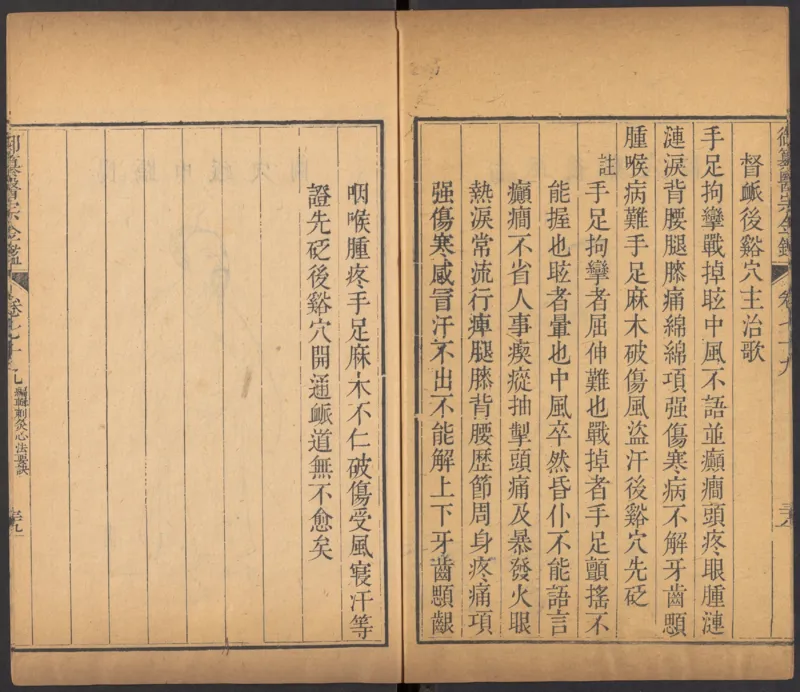 御纂醫宗金鑑 卷七十九
督脈後谿穴主治歌
手足拘攣戰掉眩中風不語並癲癇頭疼眼腫漣
漣淚背腰腿膝痛綿綿項强傷寒病不解牙齒顋
腫喉病難手足麻木破傷風盜汗後谿穴先砭
註
手足拘攣者屈伸難也戰掉者手足顫搖不
能握也眩者暈也中風卒然昏仆不能語言
癲癇不省人事瘈瘲抽掣頭痛及暴發火眼
熱淚常流行痺腿膝背腰歷節周身疼痛項
强傷寒感冒汗不出不能解上下牙齒顋齦
咽喉腫疼手足麻木不仁破傷受風寢汗等
證先砭後谿穴開通脈道無不愈矣
御纂醫宗金鑑 卷七十九 編輯刺灸心法要訣